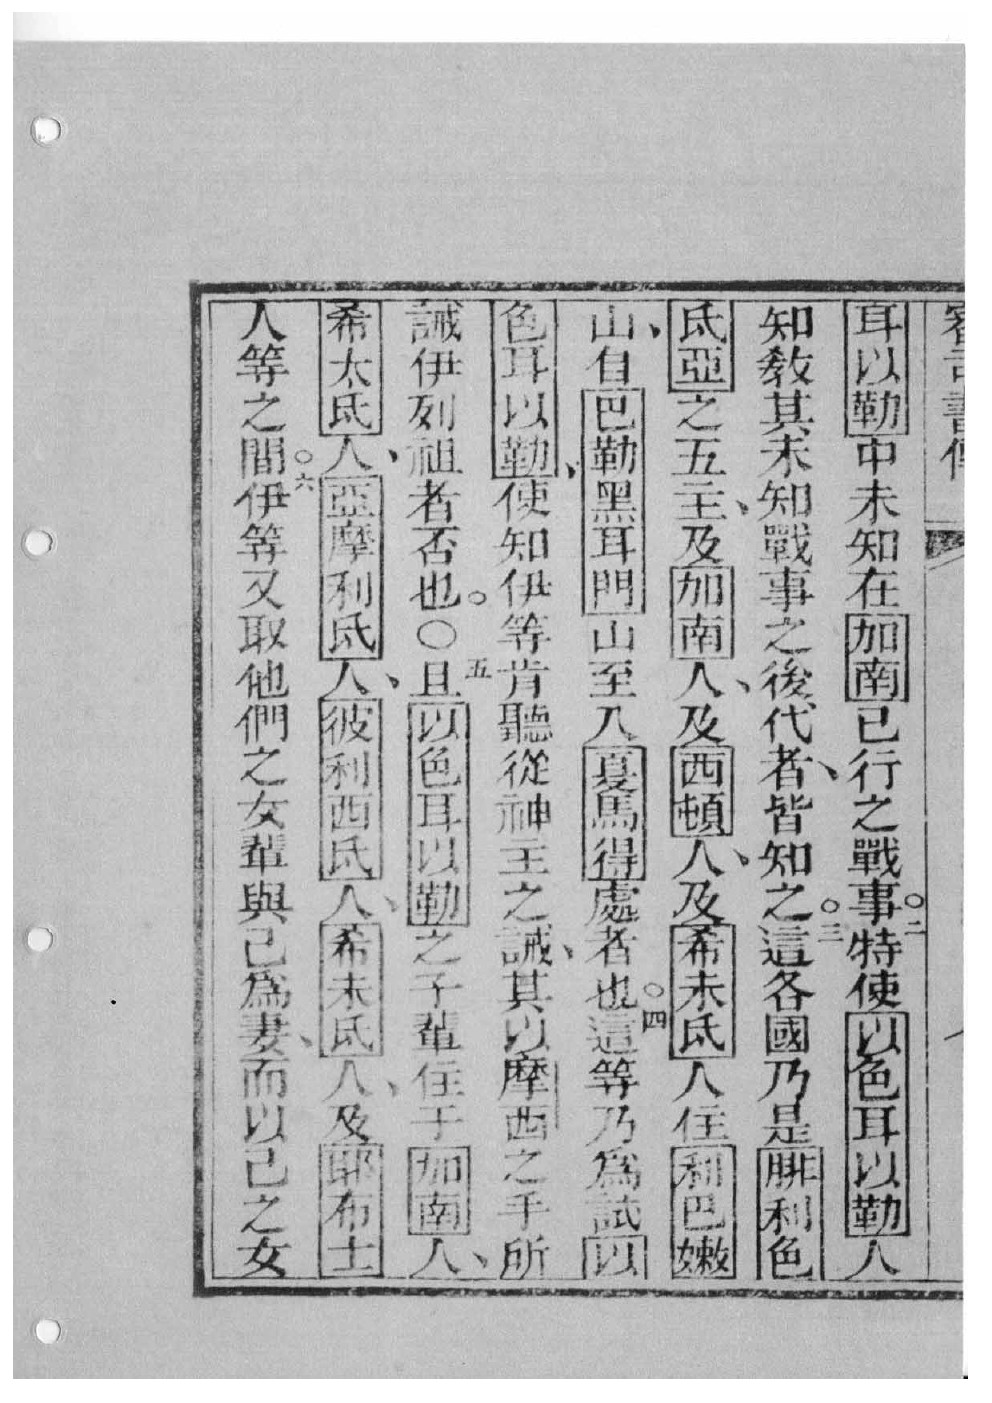 審司書傳
耳以勒中未知在加南已行之戰事。二特使以色耳以勒人
知教其未知戰事之後代者、皆知之。三這各國乃是腓利色
氐亞之五主、及加南人、及西頓人、及希未氐人住利巴嫩
山、自巴勒黑耳門山至入夏馬得處者也。四這等乃為試以
色耳以勒、使知伊等肯聽從神主之誡、其以摩西之手所
誡伊列祖者否也。〇五且以色耳以勒之子輩住于加南人、
希太氐人、亞摩利氐人、彼利西氐人、希未氐人、及耶布士
人等之間。六伊等又取他們之女輩與己為妻、而以己之女